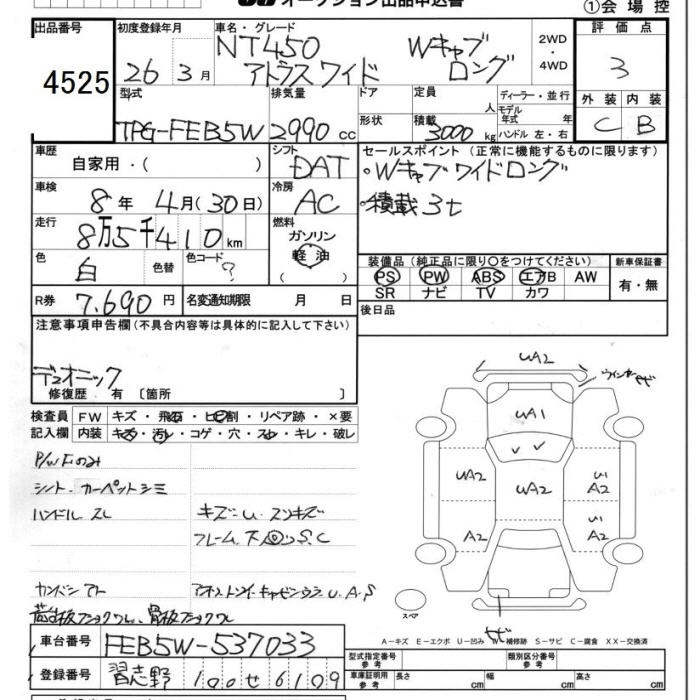 オークション出品申込書
①会場控
出品番号
4525
初度登録年月
26年 3月
車名・グレード
NT450
アトラスワイド
Wキャブ
ロング
2WD
・
4WD
評価点
3
外装 内装
C B
型式
TPG-FEB5W
排気量
2990 cc
ドア
形状
定員
人
積載
3000kg
ディーラー・並行
モデル
年式 年
ハンドル 左・右
車歴
自家用・( )
シフト
DAT
セールスポイント (正常に機能するものに限ります)
・Wキャブワイドロング
・積載3t
車検
8年 4月(30日)
冷房
AC
走行
8万5千410km
燃料
ガソリン
軽油
色
白
色替
色コード
?
装備品 (純正品に限り○をつけてください)
PS PW ABS エアB AW
SR ナビ TV カワ
新車保証書
有・無
R券 7.690円
名変通知期限 月 日
後日品
注意事項申告欄(不具合内容等は具体的に記入して下さい)
デュオニック
修復歴 有 〔箇所 〕
検査員
記入欄
FW キズ・飛石・ヒビ割・リペア跡・×要
内装 キズ・汚れ・コゲ・穴・スレ・キレ・破レ
P/W Fのみ
シート、カーペットシミ
ハンドル スレ
キズ=U、スリキズ
フレーム、下回りS.C
UA2
UA1
UA2
UA2
A2
A2
A2
スペア
A-キズ E-エクボ U-凹み W-補修跡 S-サビ C-腐食 XX-交換済
車台番号
FEB5W-537033
登録番号
習志野 100せ6109
型式指定番号
参考
類別区分番号
参考
車庫証明用
参考
長さ cm
幅 cm
高さ cm